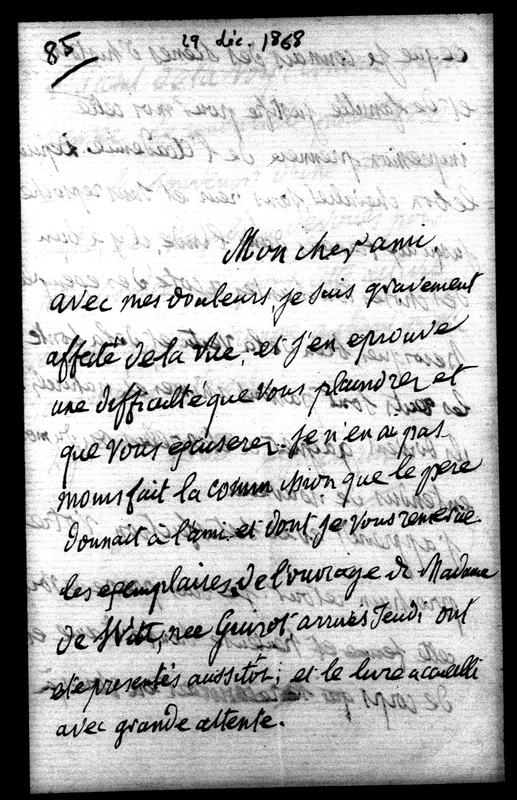 85
29 déc. 1868
Mon cher ami,
avec mes douleurs, je suis gravement
affecté de la vue; et j'en eprouve
une difficulté que vous plaindrez et
que vous excuserez. Je n'en ai pas
moins fait la commission que le pere
donnait à l'ami et dont je vous remercie
les exemplaires de l'ouvrage de Madame
de Witt, née Guizot, arrivés Jeudi ont
eté presentés aussitot; et le livre accueilli
avec grande attente.